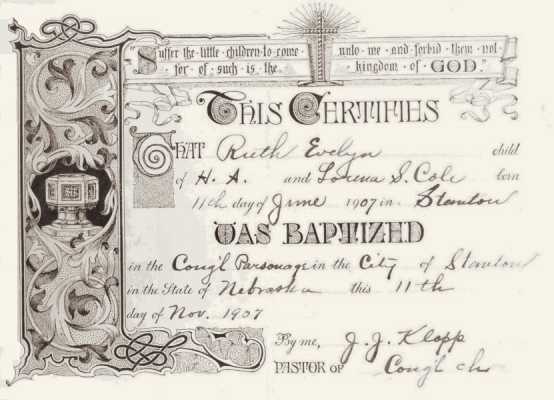 "Suffer · the · little · children · to · come · unto · me · and · forbid · them · not
· for · of · such · is · the · kingdom · of · GOD."
THIS CERTIFIES
THAT Ruth Evelyn child
of H. A. and Lorena S. Cole born
11th day of June 1907 in Stanton
WAS BAPTIZED
in the Cong'l Parsonage in the City of Stanton
in the State of Nebraska this 11th
day of Nov. 1907
By me, J. J. Klopp
PASTOR OF Cong'l ch